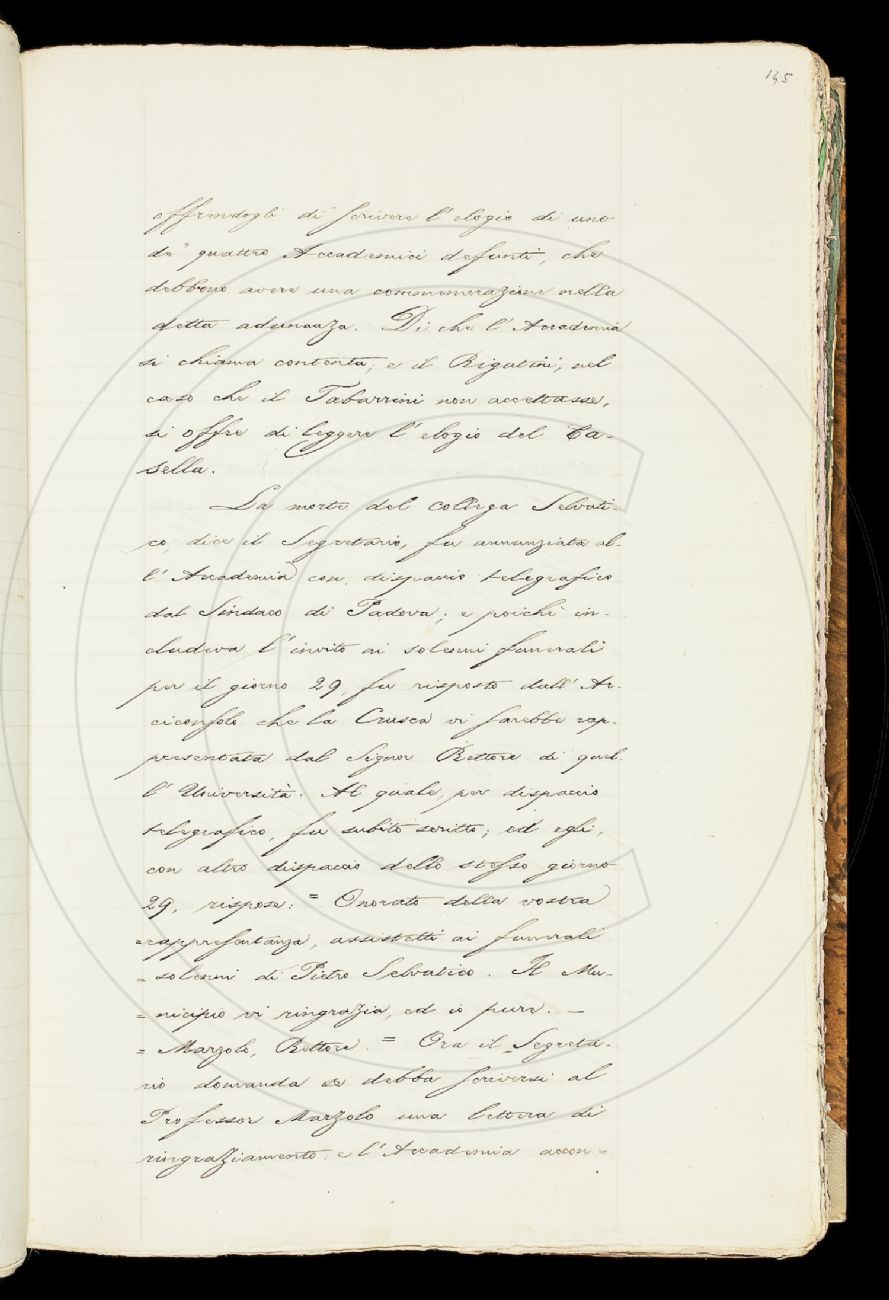 145
offrendogli di scrivere l'elogio di uno
de' quattro Accademici defunti, che
debbono avere una commemorazione nella
detta adunanza. Di che l'Accademia
si chiama contenta; e il Rigutini, nel
caso che il Tabarrini non accettasse,
si offre di leggere l'elogio del Ca-
sella.
La morte del collega Selvati-
co, dice il Segretario, fu annunziata al-
l'Accademia con dispaccio telegrafico
dal Sindaco di Padova; e poichè in-
cludeva l'invito ai solenni funerali
per il giorno 29, fu risposto dall'Ar-
ciconsolo che la Crusca vi sarebbe rap-
presentata dal Signor Rettore di quel-
l'Università. Al quale, per dispaccio
telegrafico, fu subito scritto; ed egli,
con altro dispaccio dello stesso giorno
29, rispose: = Onorato della vostra
= rappresentanza, assistetti ai funerali
= solenni di Pietro Selvatico. Il Mu-
= nicipio vi ringrazia, ed io pure. —
= Marzolo, Rettore. = Ora il Segreta-
rio domanda se debba scriversi al
Professor Marzolo una lettera di
ringraziamento: e l'Accademia accon=